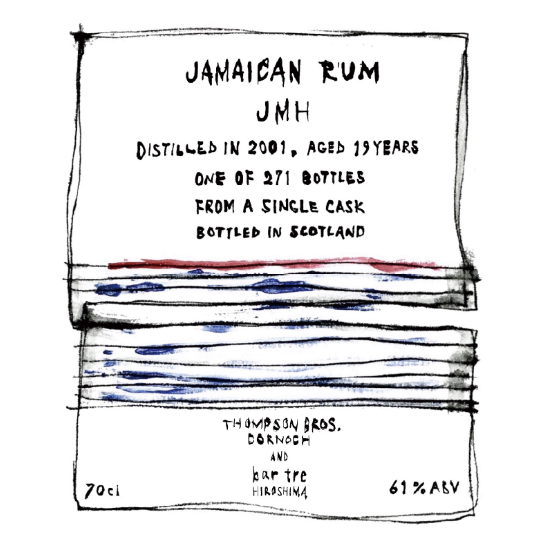 JAMAICAN RUM
JMH
DISTILLED IN 2001, AGED 19 YEARS
ONE OF 271 BOTTLES
FROM A SINGLE CASK
BOTTLED IN SCOTLAND
THOMPSON BROS.
DORNOCH
AND
bar tre
HIROSHIMA
70cl 61% ABV